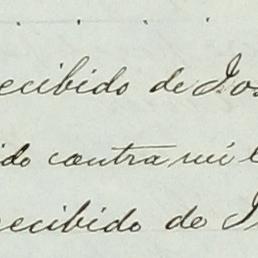 ecibido de Jos
ido contra mi l
recibido de J